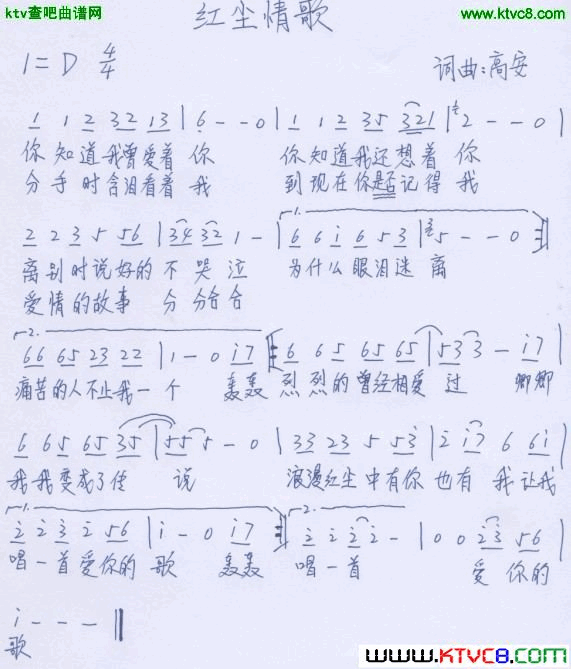 ktv查吧曲谱网
www.ktvc8.com
红尘情歌
1=D 4/4
词曲:高安
1 1 2 32 13 | 6 - - 0 | 1 1 2 35 321 | 2 - - 0 |
你知道我曾爱着你 你知道我还想着你
分手时含泪看着我 到现在你是否记得我
2 2 3 5 56 | 34 32 1 - | 6 6 i 6 5 3 | 5 - - 0 :|
离别时说好的不哭泣 为什么眼泪迷离
爱情的故事 分分合合
66 65 23 22 | 1 - 0 i7 |: 6 65 65 65 | 53 3 - i7 |
痛苦的人不止我一个 轰轰烈烈的曾经相爱过 卿卿
6 65 65 35 | 55 5 - 0 | 33 23 5 53 | 2 i7 6 6i |
我我变成了传说 浪漫红尘中有你也有我让我
1. 2 2 3 2 56 | i - 0 i7 :| 2. 2 2 2 2 - | 0 0 23 56 |
唱一首爱你的歌 轰轰 唱一首 爱你的
i - - - ‖
歌
www.KTVC8.com